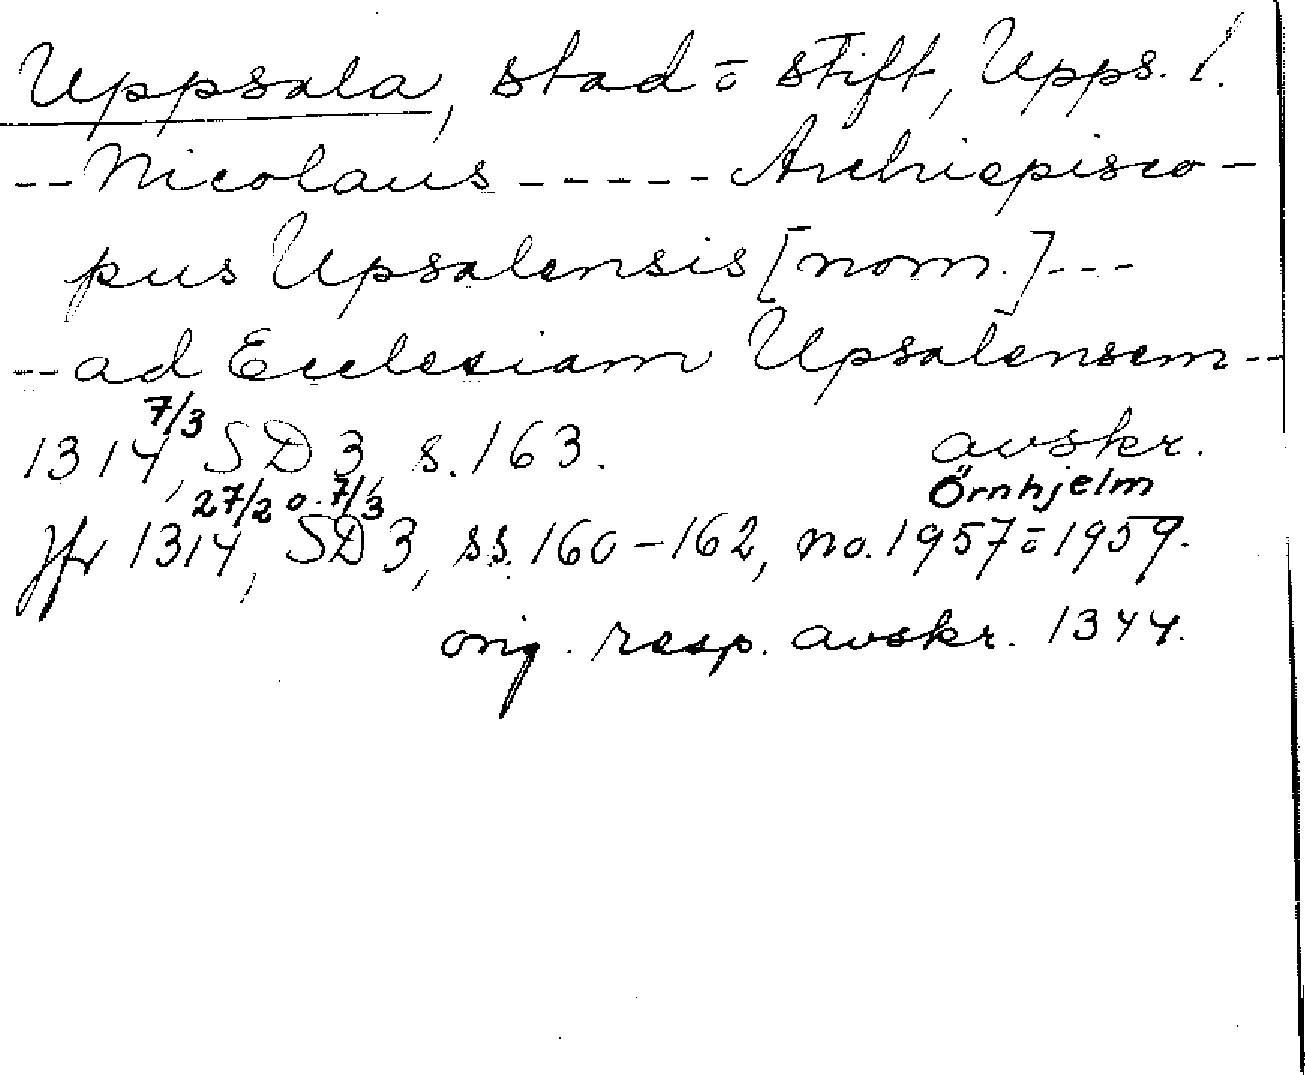 Uppsala, stad o stift, Upps. l.
-- Nicolaus ----- Archiepisco-
pus Upsalensis [nom.] ---
-- ad Ecclesiam Upsalensem --
1314 7/3, SD 3, s. 163. avskr.
Örnhjelm
Jfr 1314 27/2 o. 7/3, SD 3, ss. 160-162, no. 1957 o 1959.
orig. resp. avskr. 1344.